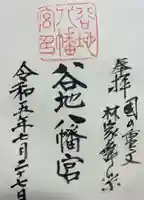 奉拝 国の重文
林家舞楽
谷地八幡宮
谷地八幡宮
令和五年七月二十七日